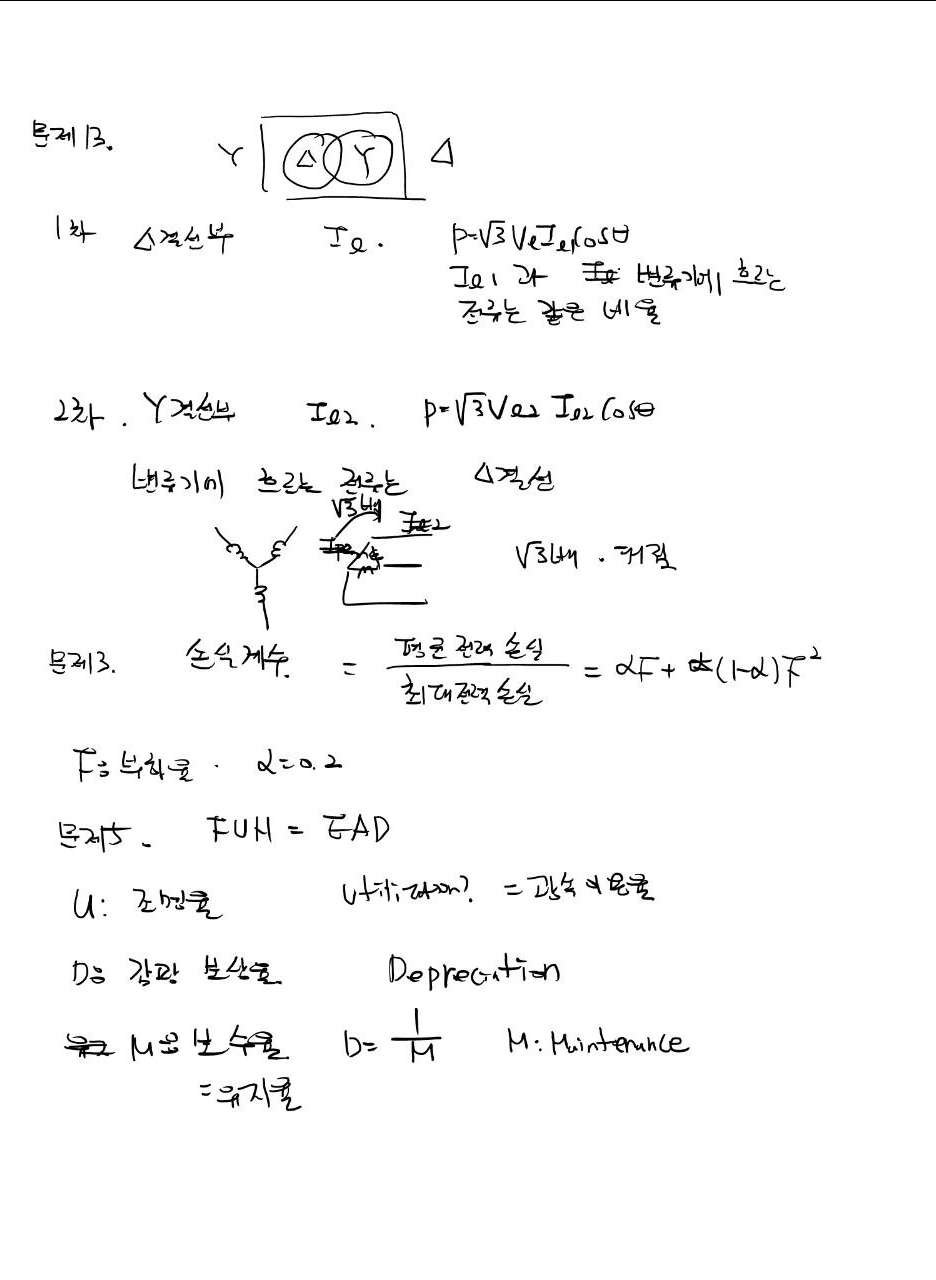 문제13. Y Δ Y Δ
1차 Δ결선부 Iℓ. P=√3VℓIℓ₁cosθ
Iℓ₁과 변류기에 흐르는
전류는 같은 비율
2차. Y결선부 Iℓ₂. P=√3Vℓ₂ Iℓ₂ cosθ
변류기에 흐르는 전류는 Δ결선
√3배
Iℓ₂
√3배.
문제3. 손실계수 = 평균 전력 손실 / 최대전력손실 = αF+(1-α)F²
F는 부하율. α=0.2
문제5. FUN = EAD
U: 조명율 Utilization? = 광속이용률
D는 감광 보상률 Depreciation
M은 보수율 D= 1/M M: Maintenance
=유지율